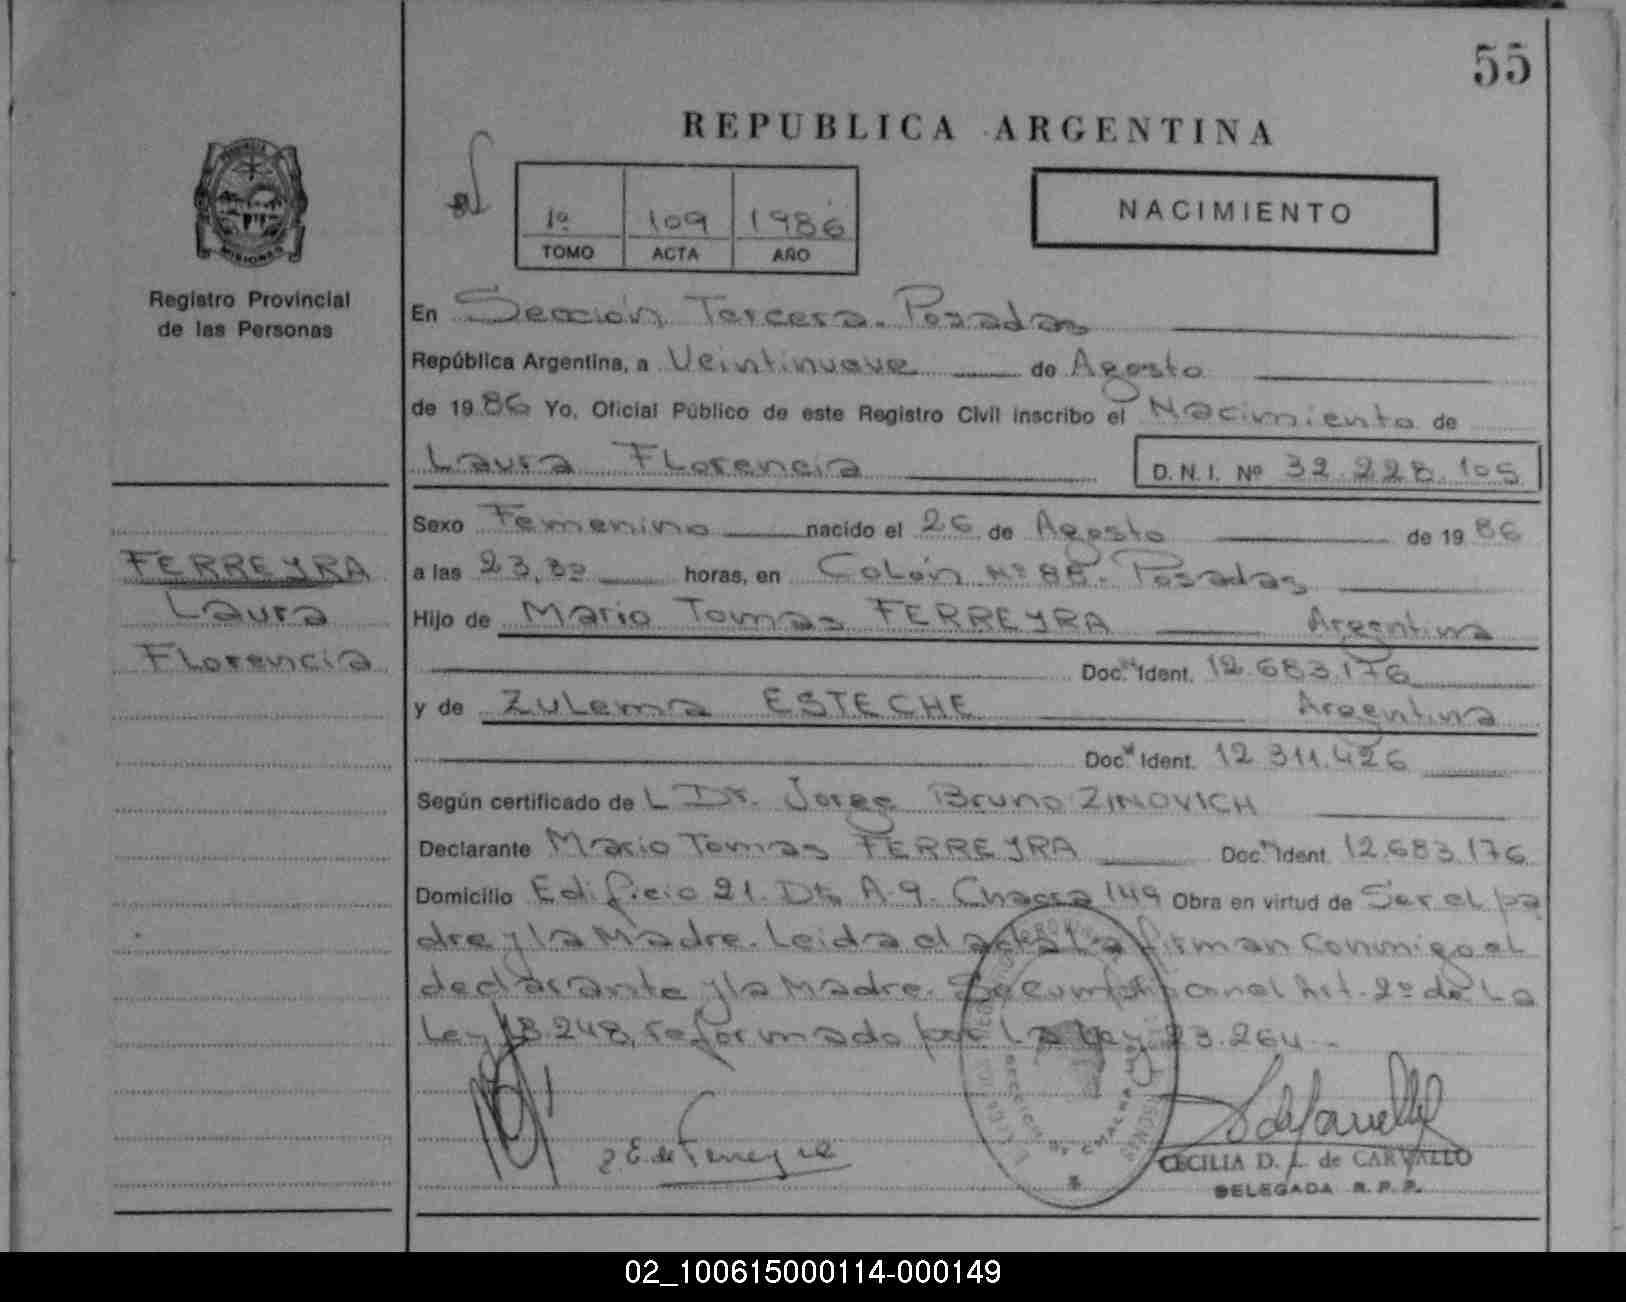 55
REPUBLICA ARGENTINA
1º 109 1986
TOMO ACTA AÑO
NACIMIENTO
PROVINCIA
MISIONES
Registro Provincial
de las Personas
En Sección Tercera. Posadas
República Argentina, a Veintinueve de Agosto
de 1986 Yo, Oficial Público de este Registro Civil inscribo el Nacimiento de
Laura Florencia D.N.I. Nº 32.228.105
Sexo Femenino nacido el 26 de Agosto de 1986
a las 23,30 horas, en Colón Nº 88. Posadas
Hijo de Mario Tomas FERREYRA Argentina
Doc. Ident. 12.683.176
y de Zulema ESTECHE Argentina
Doc. Ident. 12.311.426
Según certificado de L Dr. Jorge Bruno ZINOVICH
Declarante Mario Tomas FERREYRA Doc. Ident. 12.683.176
Domicilio Edificio 21. Dto A-9. Chacra 149 Obra en virtud de Ser el pa
dre y la Madre. Leida el acta La firman Conmigo el
declarante y la Madre. Se cumplió con el Art. 2º de La
Ley 18.248, reformado por La Ley 23.264.-
FERREYRA
Laura
Florencia
Z E. de Ferreyra
CECILIA D. L. de CARVALLO
DELEGADA R. P. P.
02_100615000114-000149